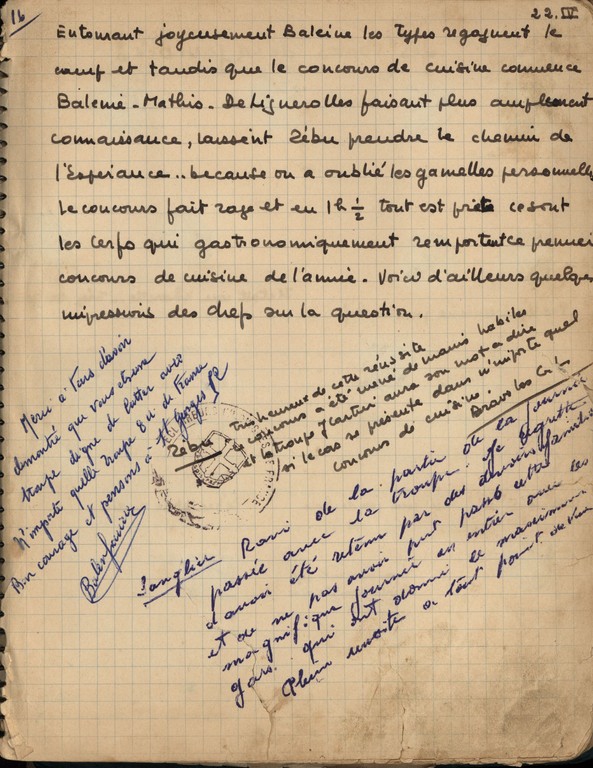 16
22.IV
Entourant joyeusement Baleine les types regagnent le
camp et tandis que le concours de cuisine commence
Baleine - Mathis - DeLignerolles faisant plus amplement
connaissance, laissent Zébu prendre le chemin de
l'Espérance.. because on a oublié les gamelles personnelles
Le concours fait rage et en 1h ½ tout est prête ce sont
les Cerfs qui gastronomiquement remportent ce premier
concours de cuisine de l'année. Voici d'ailleurs quelques
impressions des chefs sur la question.
Merci à Vous d'avoir
démontré que vous etiez une
troupe digne de lutter avec
N'importe quelle Troupe S.U. de France
Bon courage et pensons à St Georges
Zébu
Très heureux de cette réussite
ce concours a été mené de mains habiles
et la troupe J Cartier aura son mot à dire
si le cas se présente dans n'importe quel
concours de cuisine.
Bravo les
Sanglier Ravi de la partie de la journée
passée avec la troupe. Je regrette
d'avoir été retenu par des devoirs familiaux
et de ne pas avoir pu passé cette
magnifique journée en entier avec les
gars. qui ont donné le maximum
Pleine réussite à tout point de vue